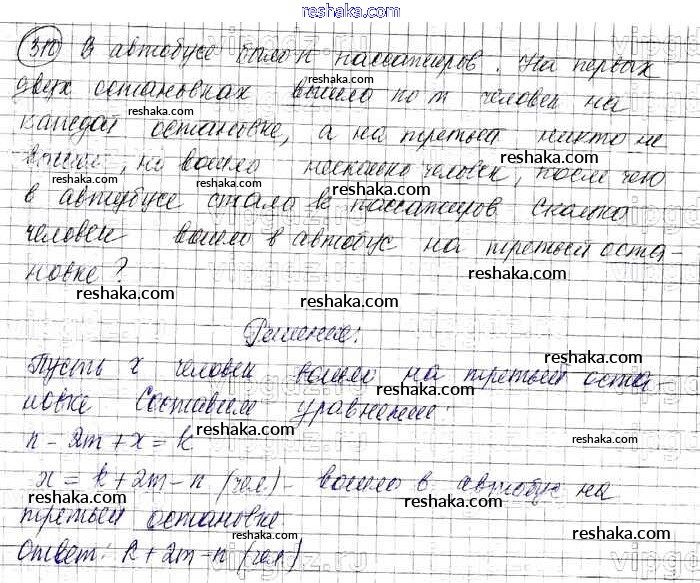 reshaka.com
310 В автобусе было n пассажиров. На первых
двух остановках вышло по m человек на
reshaka.com reshaka.com
каждой остановке, а на третьей никто не
reshaka.com
вышел, но вошло несколько человек, после чего
reshaka.com reshaka.com
в автобусе стало k пассажиров. Сколько
reshaka.com
человек вошло в автобус на третьей оста-
новке?
reshaka.com reshaka.com reshaka.com
Решение:
reshaka.com
Пусть x человек вошло на третьей оста
reshaka.com
новке Составим уравнение:
reshaka.com
n - 2m + x = k
reshaka.com
x = k + 2m - n (чел) - вошло в автобус на
reshaka.com reshaka.com
третьей остановке
reshaka.com
Ответ: k + 2m - n (чел.)
reshaka.com vipgdz.ru
reshaka.com